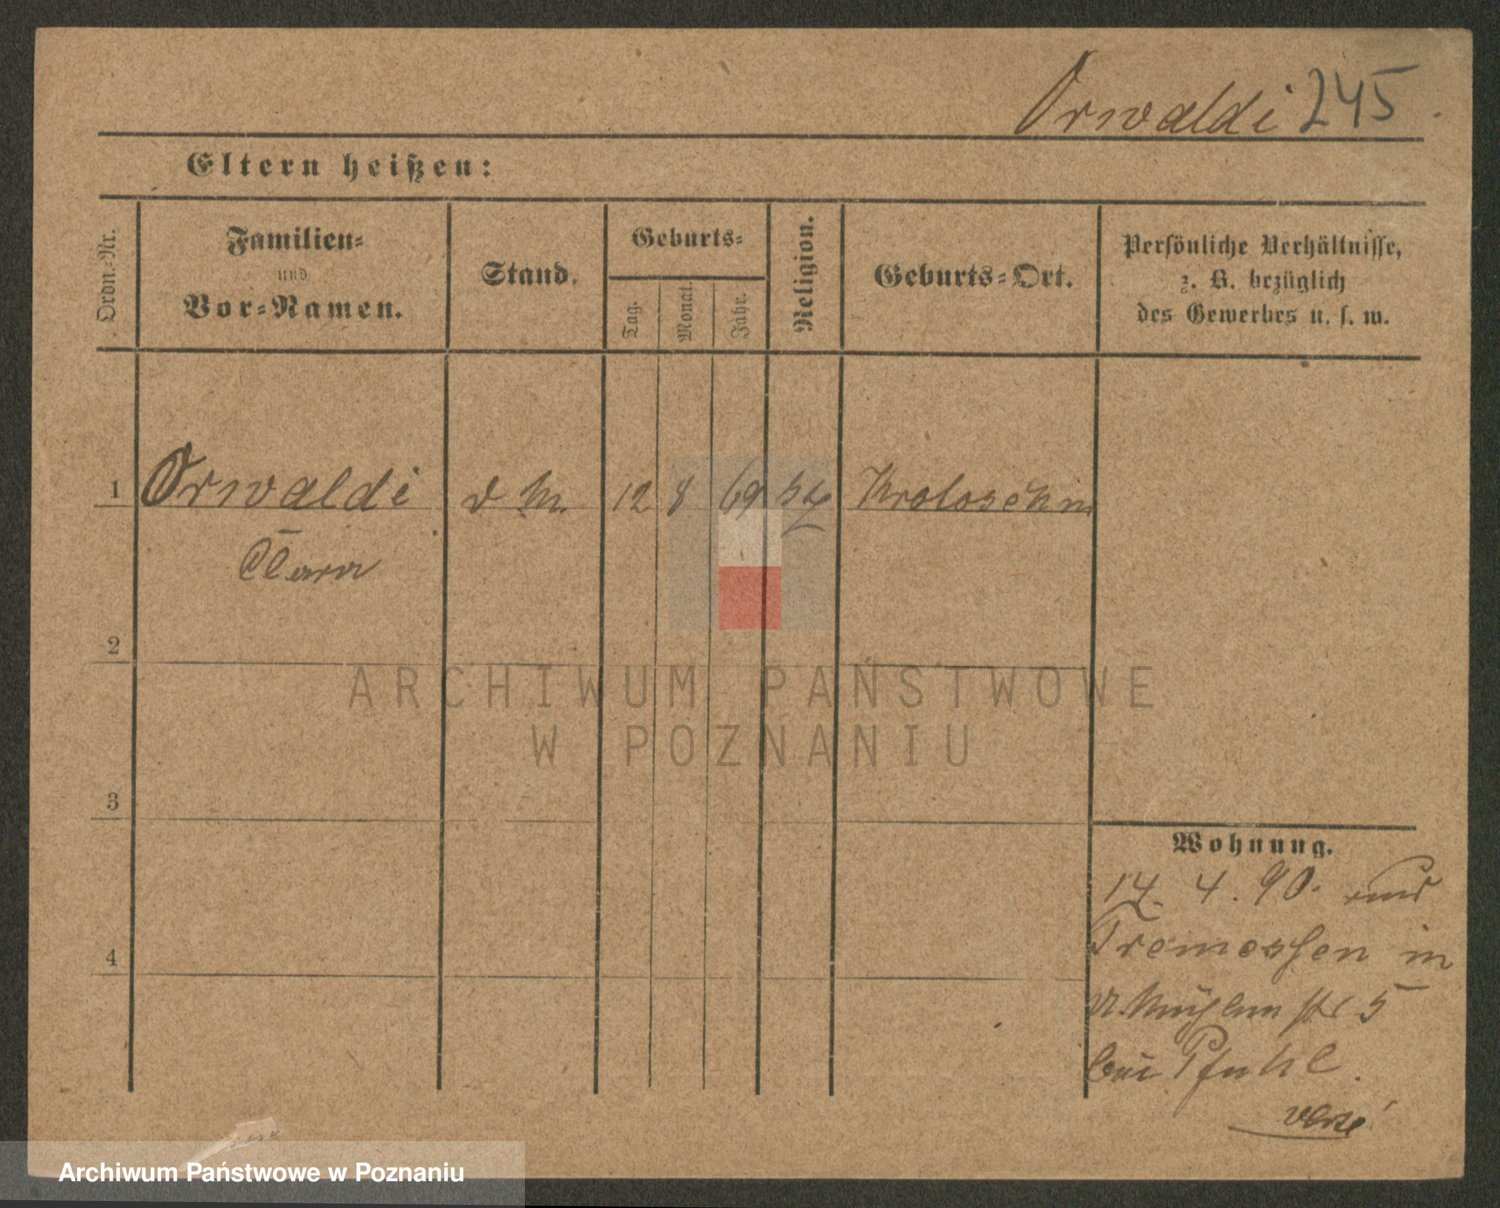 Orwaldi 245
Eltern heißen:
Ordn.-Nr.
Familien-
und
Vor-Namen.
Stand.
Geburts-
Tag.
Monat.
Jahr.
Religion.
Geburts-Ort.
Persönliche Verhältnisse,
z. B. bezüglich
des Gewerbes u. s. w.
1 Orwaldi d M. 12 8 69 Krotoschin
Clara
2
ARCHIWUM PAŃSTWOWE
W POZNANIU
3
Wohnung.
14. 4. 90.
Tremessen in
5
bei Pfuhl.
4
Archiwum Państwowe w Poznaniu